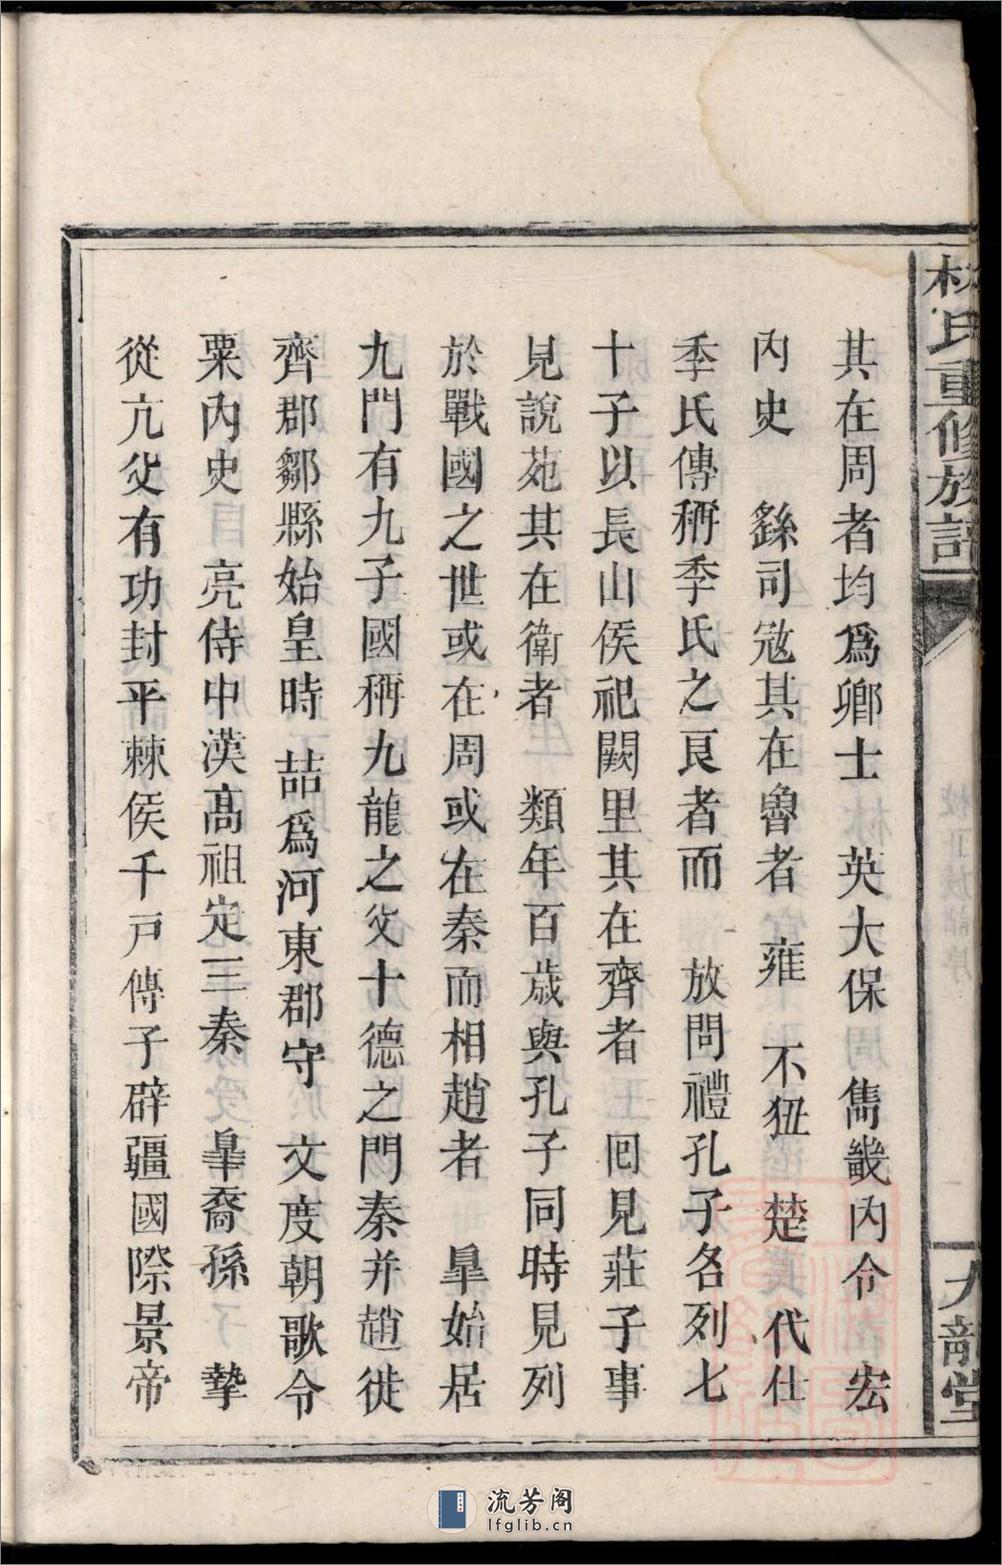 林氏重修族譜
九龍堂
其在周者均爲卿士 英大保 雋畿內令 宏
內史 繇司冦其在魯者 雍 不狃 楚 代仕
季氏傳稱季氏之良者而 放問禮孔子名列七
十子以長山侯祀闕里其在齊者 回見莊子事
見說苑其在衛者 類年百歲與孔子同時見列
於戰國之世或在周或在秦而相趙者 皐始居
九門有九子國稱九龍之父十德之門秦并趙徙
齊郡鄒縣始皇時 喆爲河東郡守 文度朝歌令
粟內史 亮侍中漢髙祖定三秦 皐裔孫 摯
從亢父有功封平棘侯千戸傳子辟疆國際景帝
流芳阁
lfglib.cn